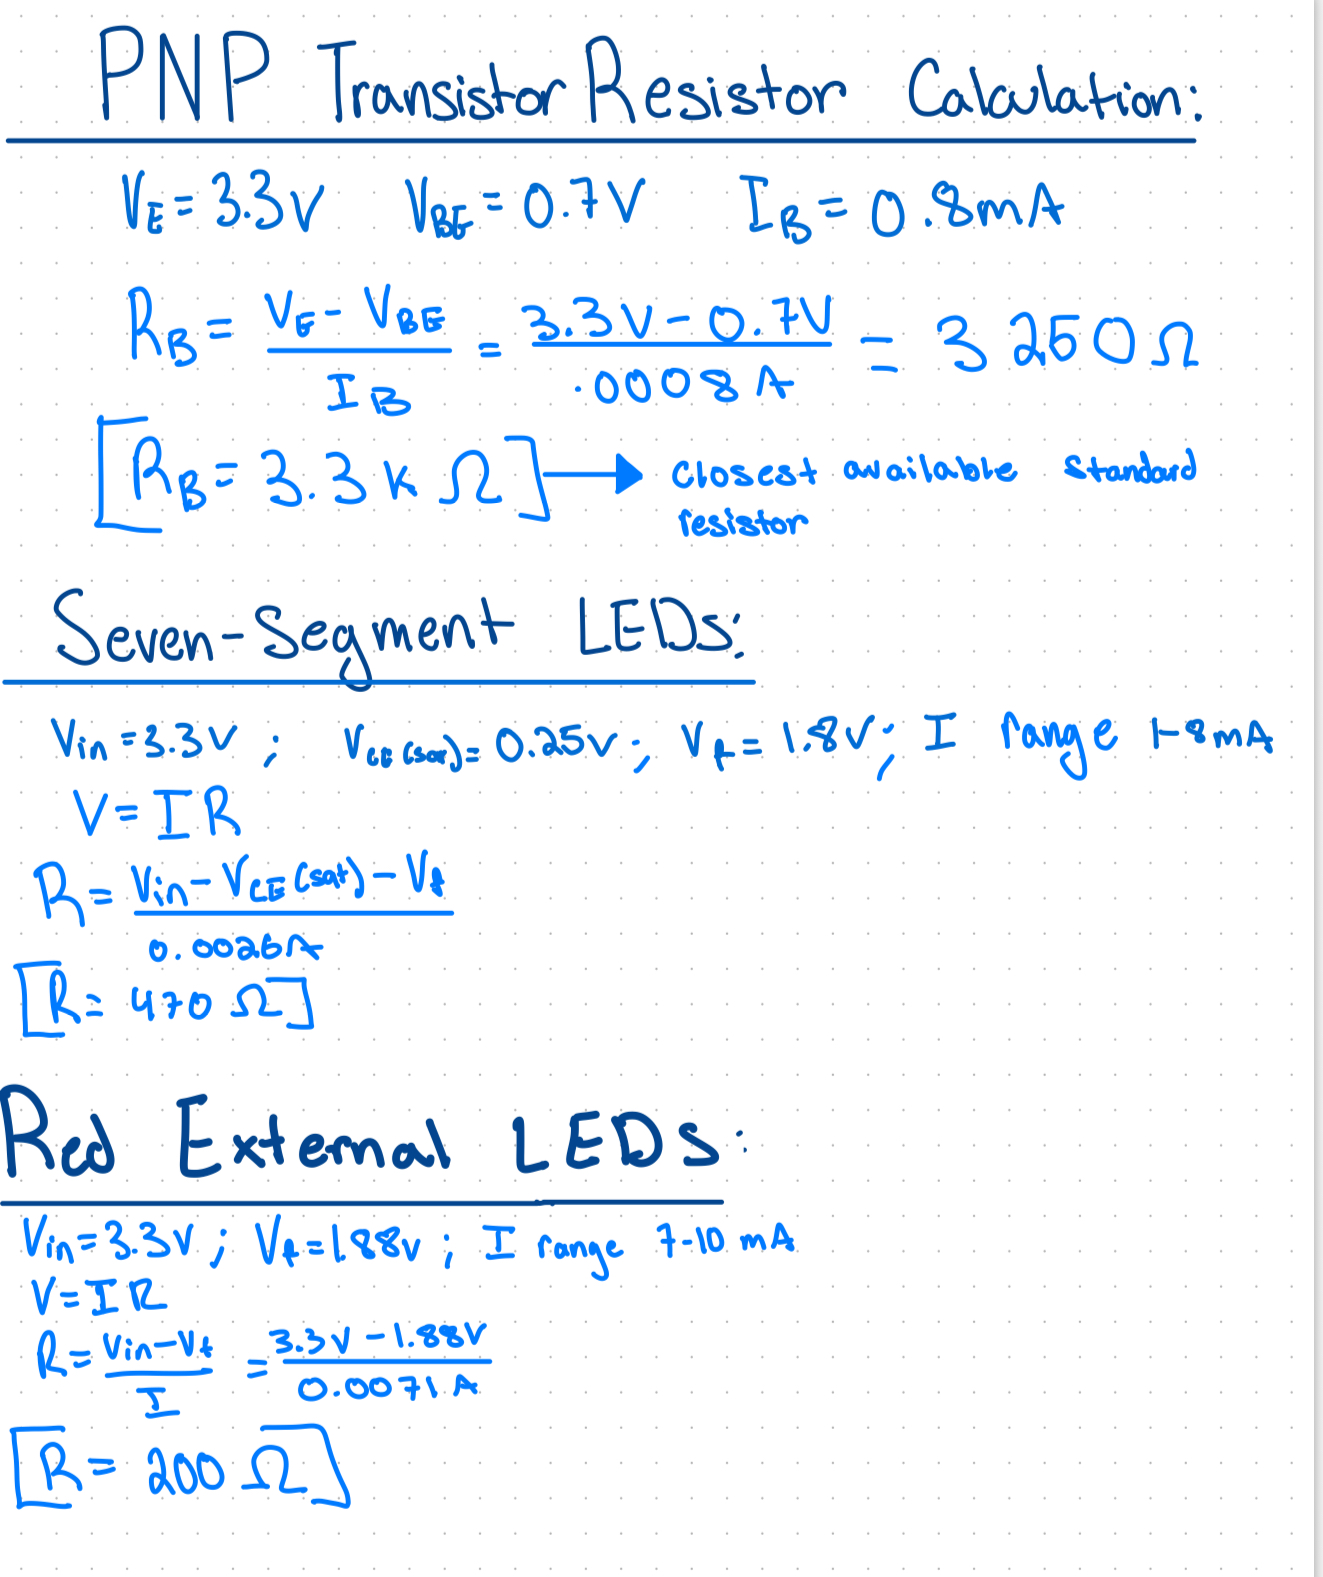 PNP Transistor Resistor Calculation:
V_E = 3.3V V_BE = 0.7V I_B = 0.8mA
R_B = (V_E - V_BE) / I_B = (3.3V - 0.7V) / .0008A = 3250Ω
[R_B = 3.3kΩ] → Closest available standard
resistor
Seven-Segment LEDs:
Vin = 3.3V ; V_CE(sat) = 0.25V ; V_f = 1.8V ; I range 1-8mA
V = IR
R = (Vin - V_CE(sat) - V_f) / 0.0026A
[R = 470 Ω]
Red External LEDs:
Vin = 3.3V ; V_f = 1.88V ; I range 7-10 mA
V = IR
R = (Vin - V_f) / I = (3.3V - 1.88V) / 0.0071A
[R = 200 Ω]